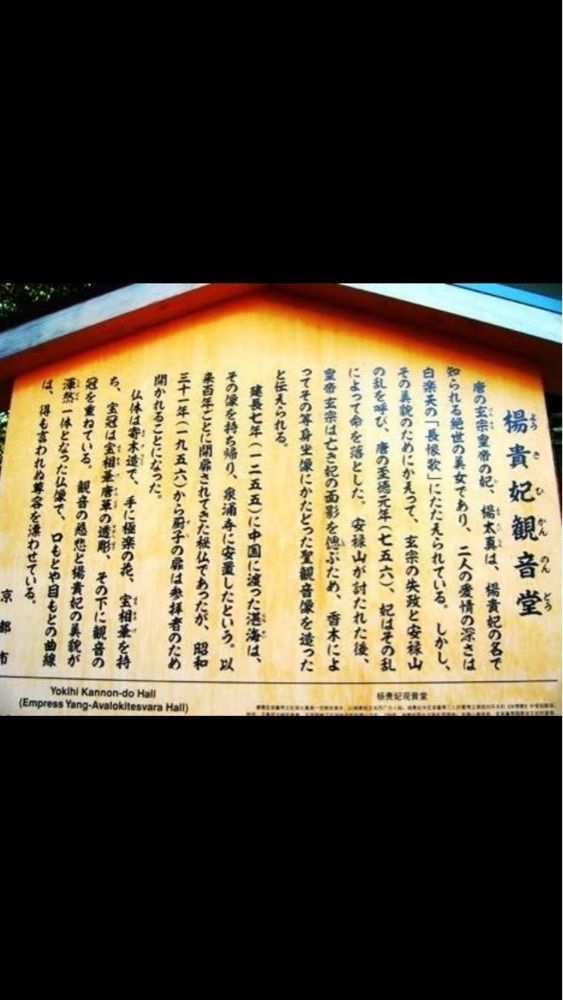 楊貴妃観音堂
唐の玄宗皇帝の妃、楊太真は、楊貴妃の名で
知られる絶世の美女であり、二人の愛情の深さは
白楽天の「長恨歌」にたたえられている。しかし、
その美貌のためにかえって、玄宗の失政と安禄山
の乱を呼び、唐の至徳元年(七五六)、妃はその乱
によって命を落とした。安禄山が討たれた後、
皇帝玄宗は亡き妃の面影を偲ぶため、香木によ
ってその等身坐像にかたどった聖観音像を造った
と伝えられる。
建長七年(一二五五)に中国に渡った湛海は、
その像を持ち帰り、泉涌寺に安置したという。以
来百年ごとに開扉されてきた秘仏であったが、昭和
三十一年(一九五六)から厨子の扉は参拝者のため
開かれることになった。
仏体は寄木造で、手に極楽の花、宝相華を持
ち、宝冠は宝相華唐草の透彫、その下に観音の
冠を重ねている。観音の慈悲と楊貴妃の美貌が
渾然一体となった仏像で、口もとや目もとの曲線
は、得も言われぬ尊容を漂わせている。
京都市
Yokihi Kannon-do Hall
(Empress Yang-Avalokitesvara Hall)
杨贵妃观音堂